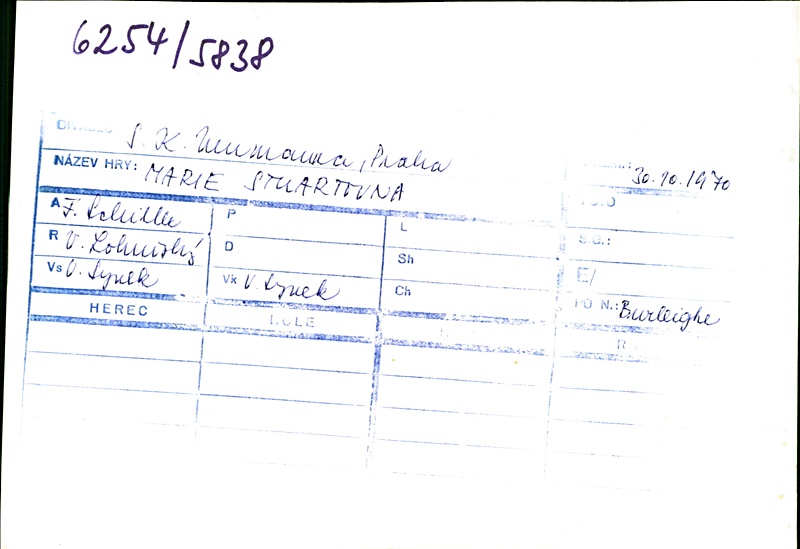 6254/5838
DIVADLO S. K. Neumanna, Praha
NÁZEV HRY: MARIE STUARTOVNA 30.10.1970
A F. Schiller P L
R V. Lohniský D Sh S.G.:
Vs V. Synek Vk V. Synek Ch E/
PO N.: Burleighe
HEREC ROLE R